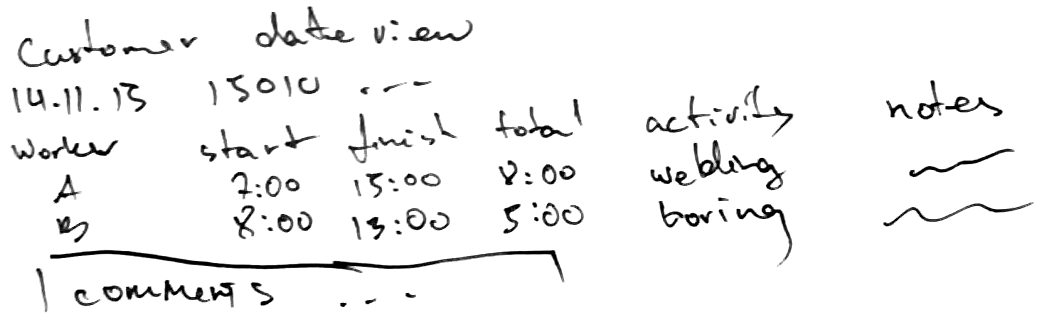 Customer date view
14.11.15 15010 ...
Worker start finish total activity notes
A 7:00 15:00 8:00 webling
B 8:00 13:00 5:00 boring
comments ...